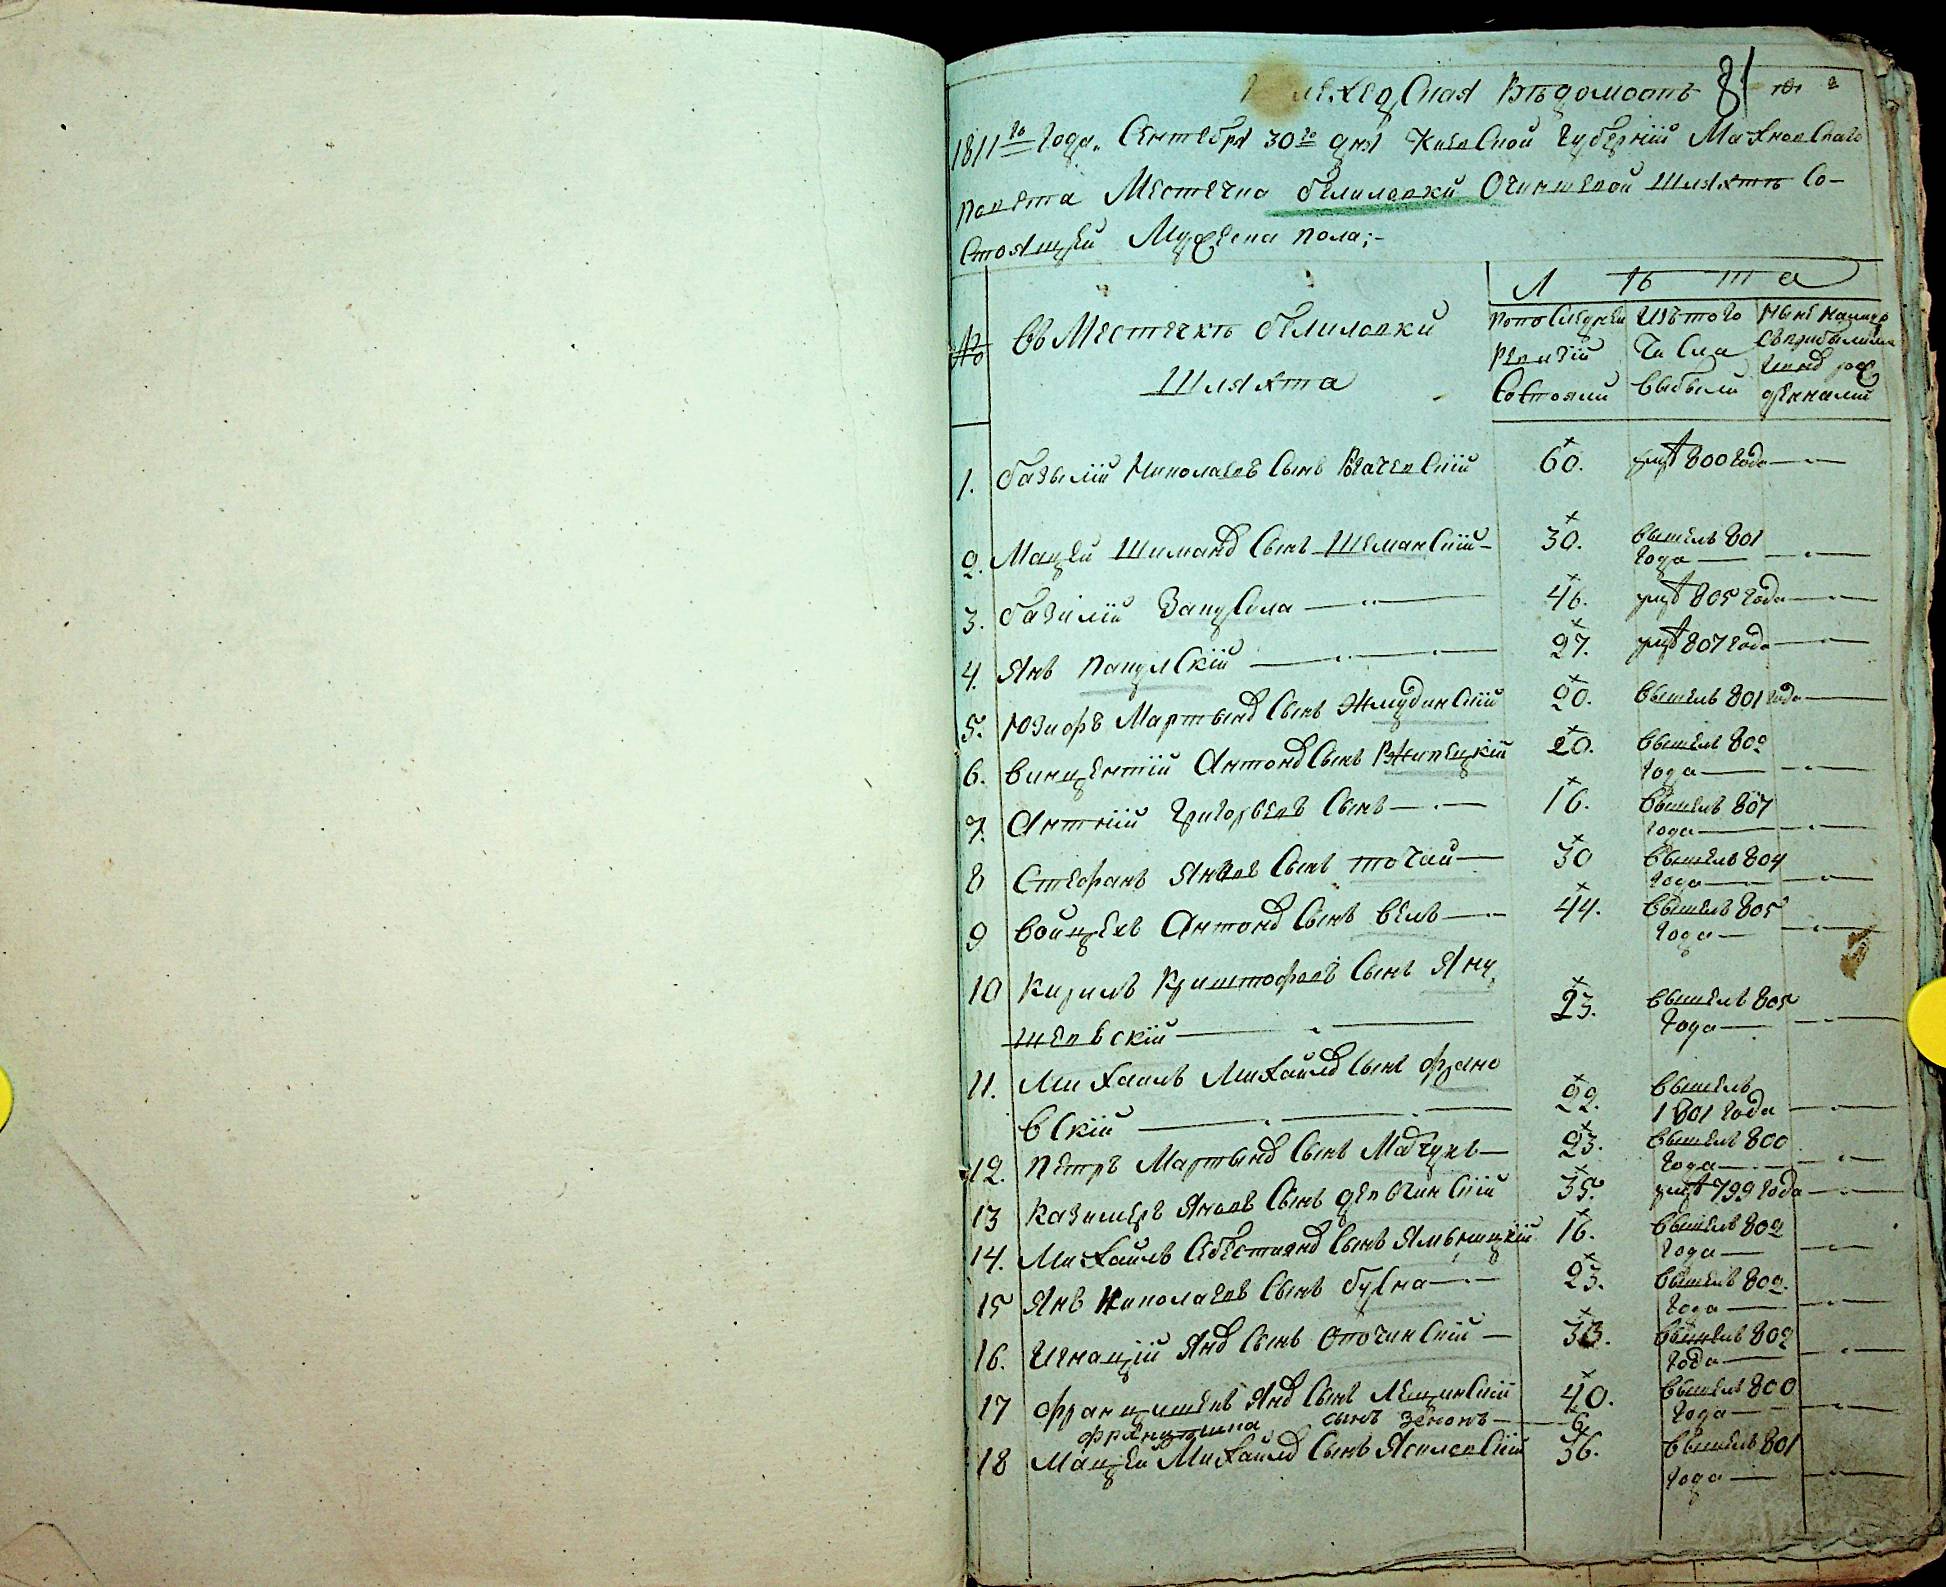 Вѣдомость 81
1811го года. Сентебря 30го дня Киевской Губернїи Махновскаго
повета Местечка белиловки Очиншевой шляхтѣ Со-
стоящей Мужеска пола;-
Л ѣ т а
№
Въ Местечкѣ белиловки
Шляхта
Попоследней Ревизїи Состояли
Изътого Числа Выбыли
Ныне налицо
1. базылїй Николаевъ Сынъ 60. умръ 800 года
2. Мацей Шиманов Сынъ Шеманскїй 30. вышелъ 801
года
3. базилїй Запускла 46. умръ 805 года
4. Янъ Пацулскїй 27. умръ 807 года
5. Юзифъ Мартынов Сынъ Жмудинскїй 20. вышелъ 801 года
6. Винцентїй Антонов Сынъ Ржипецкїй 20. вышелъ 802
года
7. Антнїй Григорьевъ Сынъ 16. вышелъ 807
года
8 Стефанъ Янковъ Сынъ точай 30 вышелъ 804
года
9 Войцехъ Антонов Сынъ Велъ 44. вышелъ 805
года
10 Кирилъ Криштофовъ Сынъ Яну
шевскїй 23. вышелъ 805
года
11. Михаилъ Михайлов Сынъ Франо
вскїй 22. вышелъ
1801 года
12. Петръ Мартынов Сынъ Мадчукъ 23. вышелъ 800
года
13 Казимеръ Яновъ Сынъ 35. умръ 799 года
14. Михайлъ Себестиянов Сынъ Ямѣницкїй 16. вышелъ 802
года
15 Янъ Николаевъ Сынъ букна 23. вышелъ 802
года
16. Игнацїй Янов Сынъ Опочинскїй 33. вышелъ 802
года
17 Францишекъ Янов Сынъ Лещинскїй 40. вышелъ 800
года
Францишка сынъ Зенонъ 6
18 Мацей Михайлов Сынъ Ясиловскїй 36. вышелъ 801
года